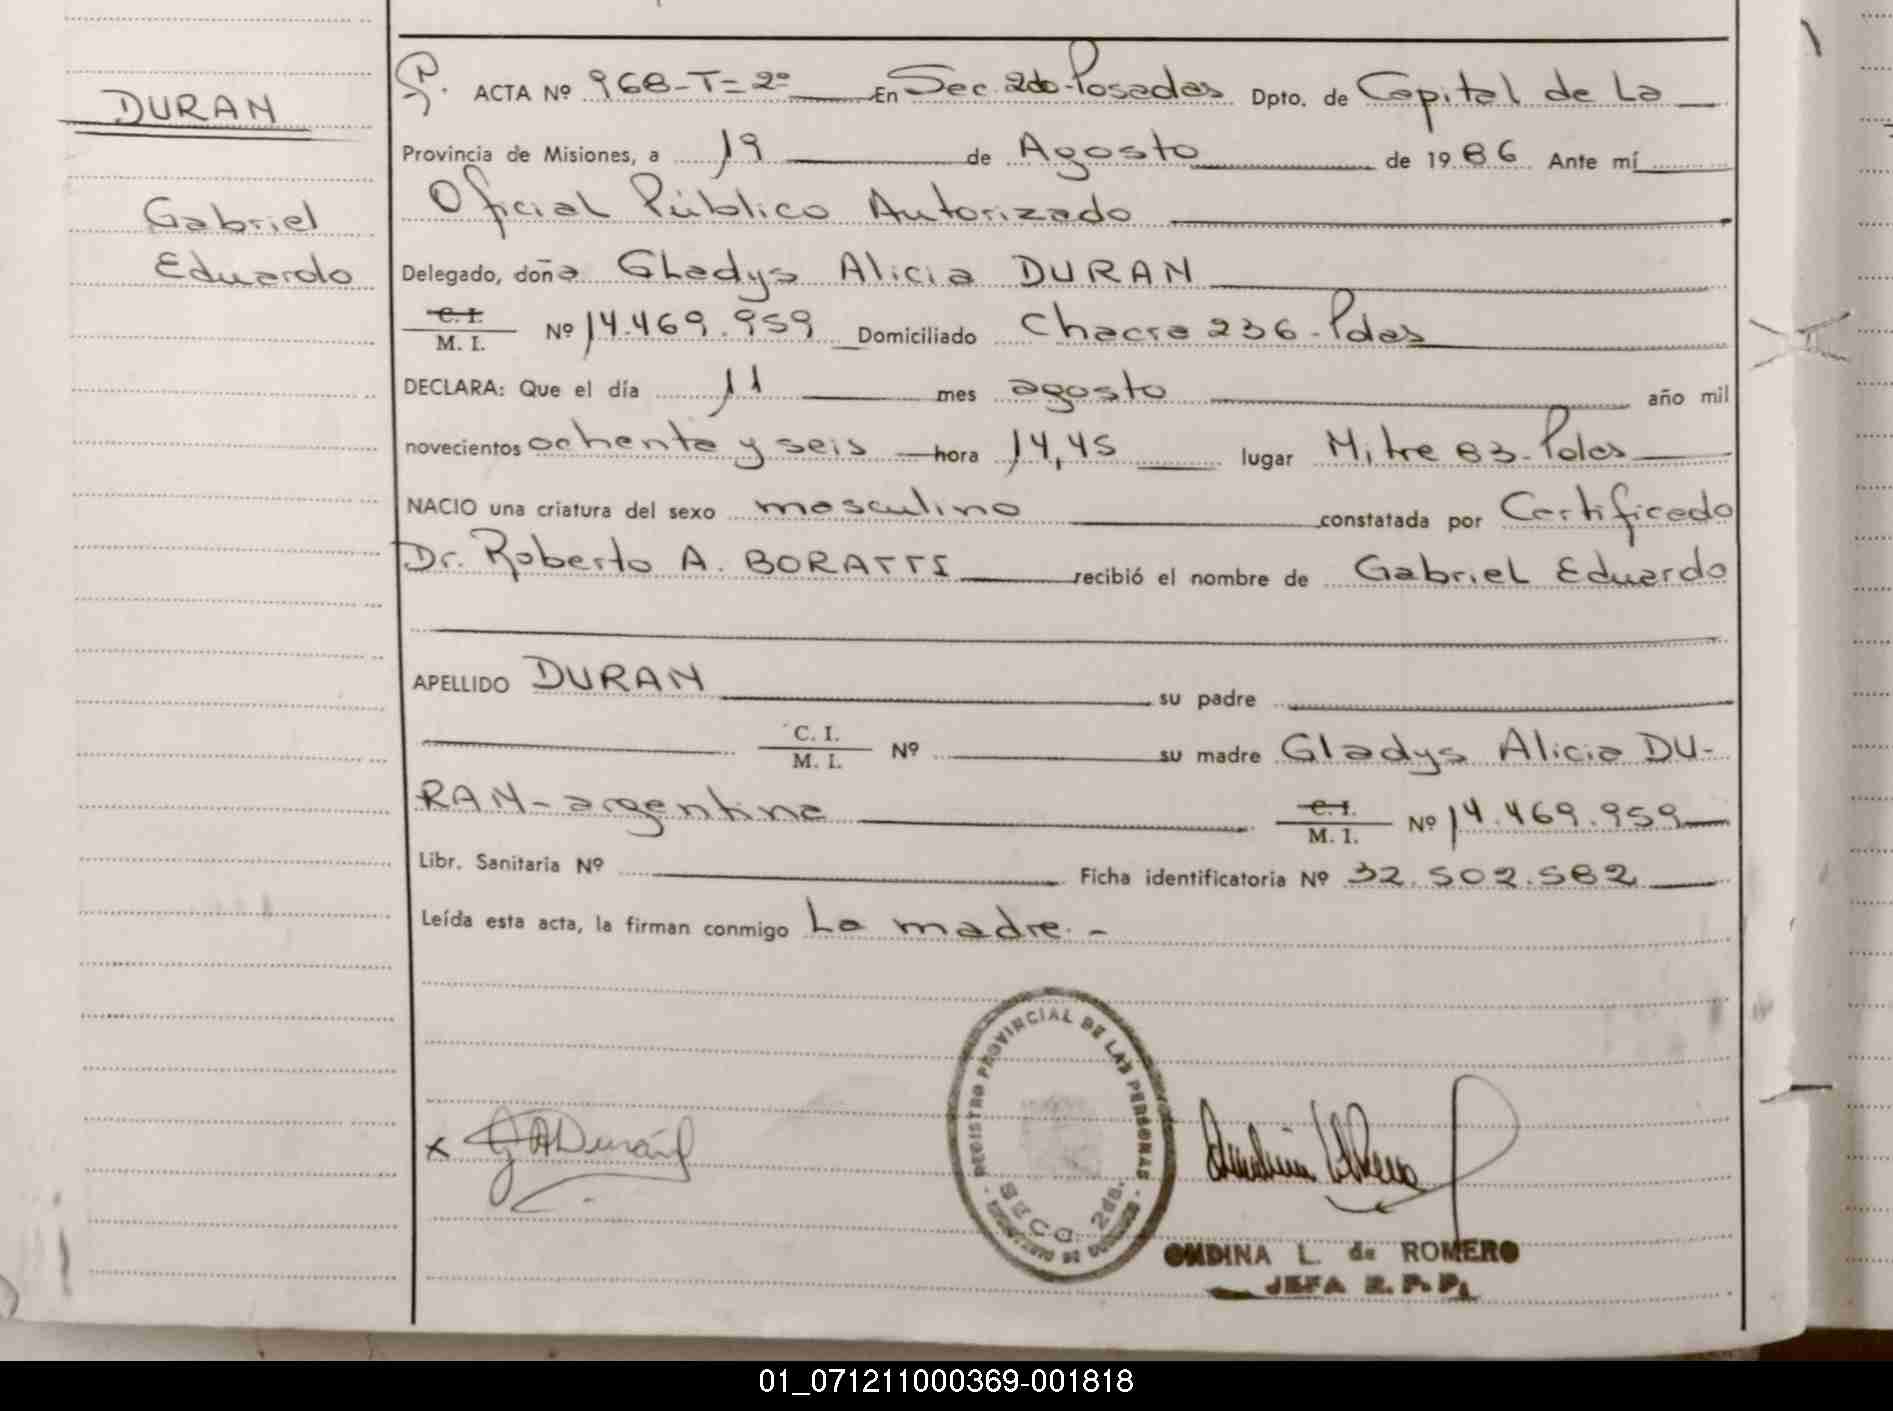 DURAN
Gabriel
Eduardo
ACTA Nº 968-T=2º En Sec. 2da Posadas Dpto. de Capital de La
Provincia de Misiones, a 19 de Agosto de 1986 Ante mí
Oficial Público Autorizado
Delegado, doña Gladys Alicia DURAN
C. I.
M. I. Nº 14.469.959 Domiciliado Chacra 236-Pdas
DECLARA: Que el día 11 mes agosto año mil
novecientos ochenta y seis hora 14,45 lugar Mitre 83-Pdas
NACIO una criatura del sexo masculino constatada por Certificado
Dr. Roberto A. BORATTI recibió el nombre de Gabriel Eduardo
APELLIDO DURAN su padre
C. I.
M. I. Nº su madre Gladys Alicia DU-
RAN-argentina C. I.
M. I. Nº 14.469.959
Libr. Sanitaria Nº Ficha identificatoria Nº 32.502.582
Leída esta acta, la firman conmigo La madre.-
REGISTRO PROVINCIAL DE LAS PERSONAS
SECC. 2da.
x GADurán
ONDINA L. de ROMERO
JEFA R.P.P.
01_071211000369-001818